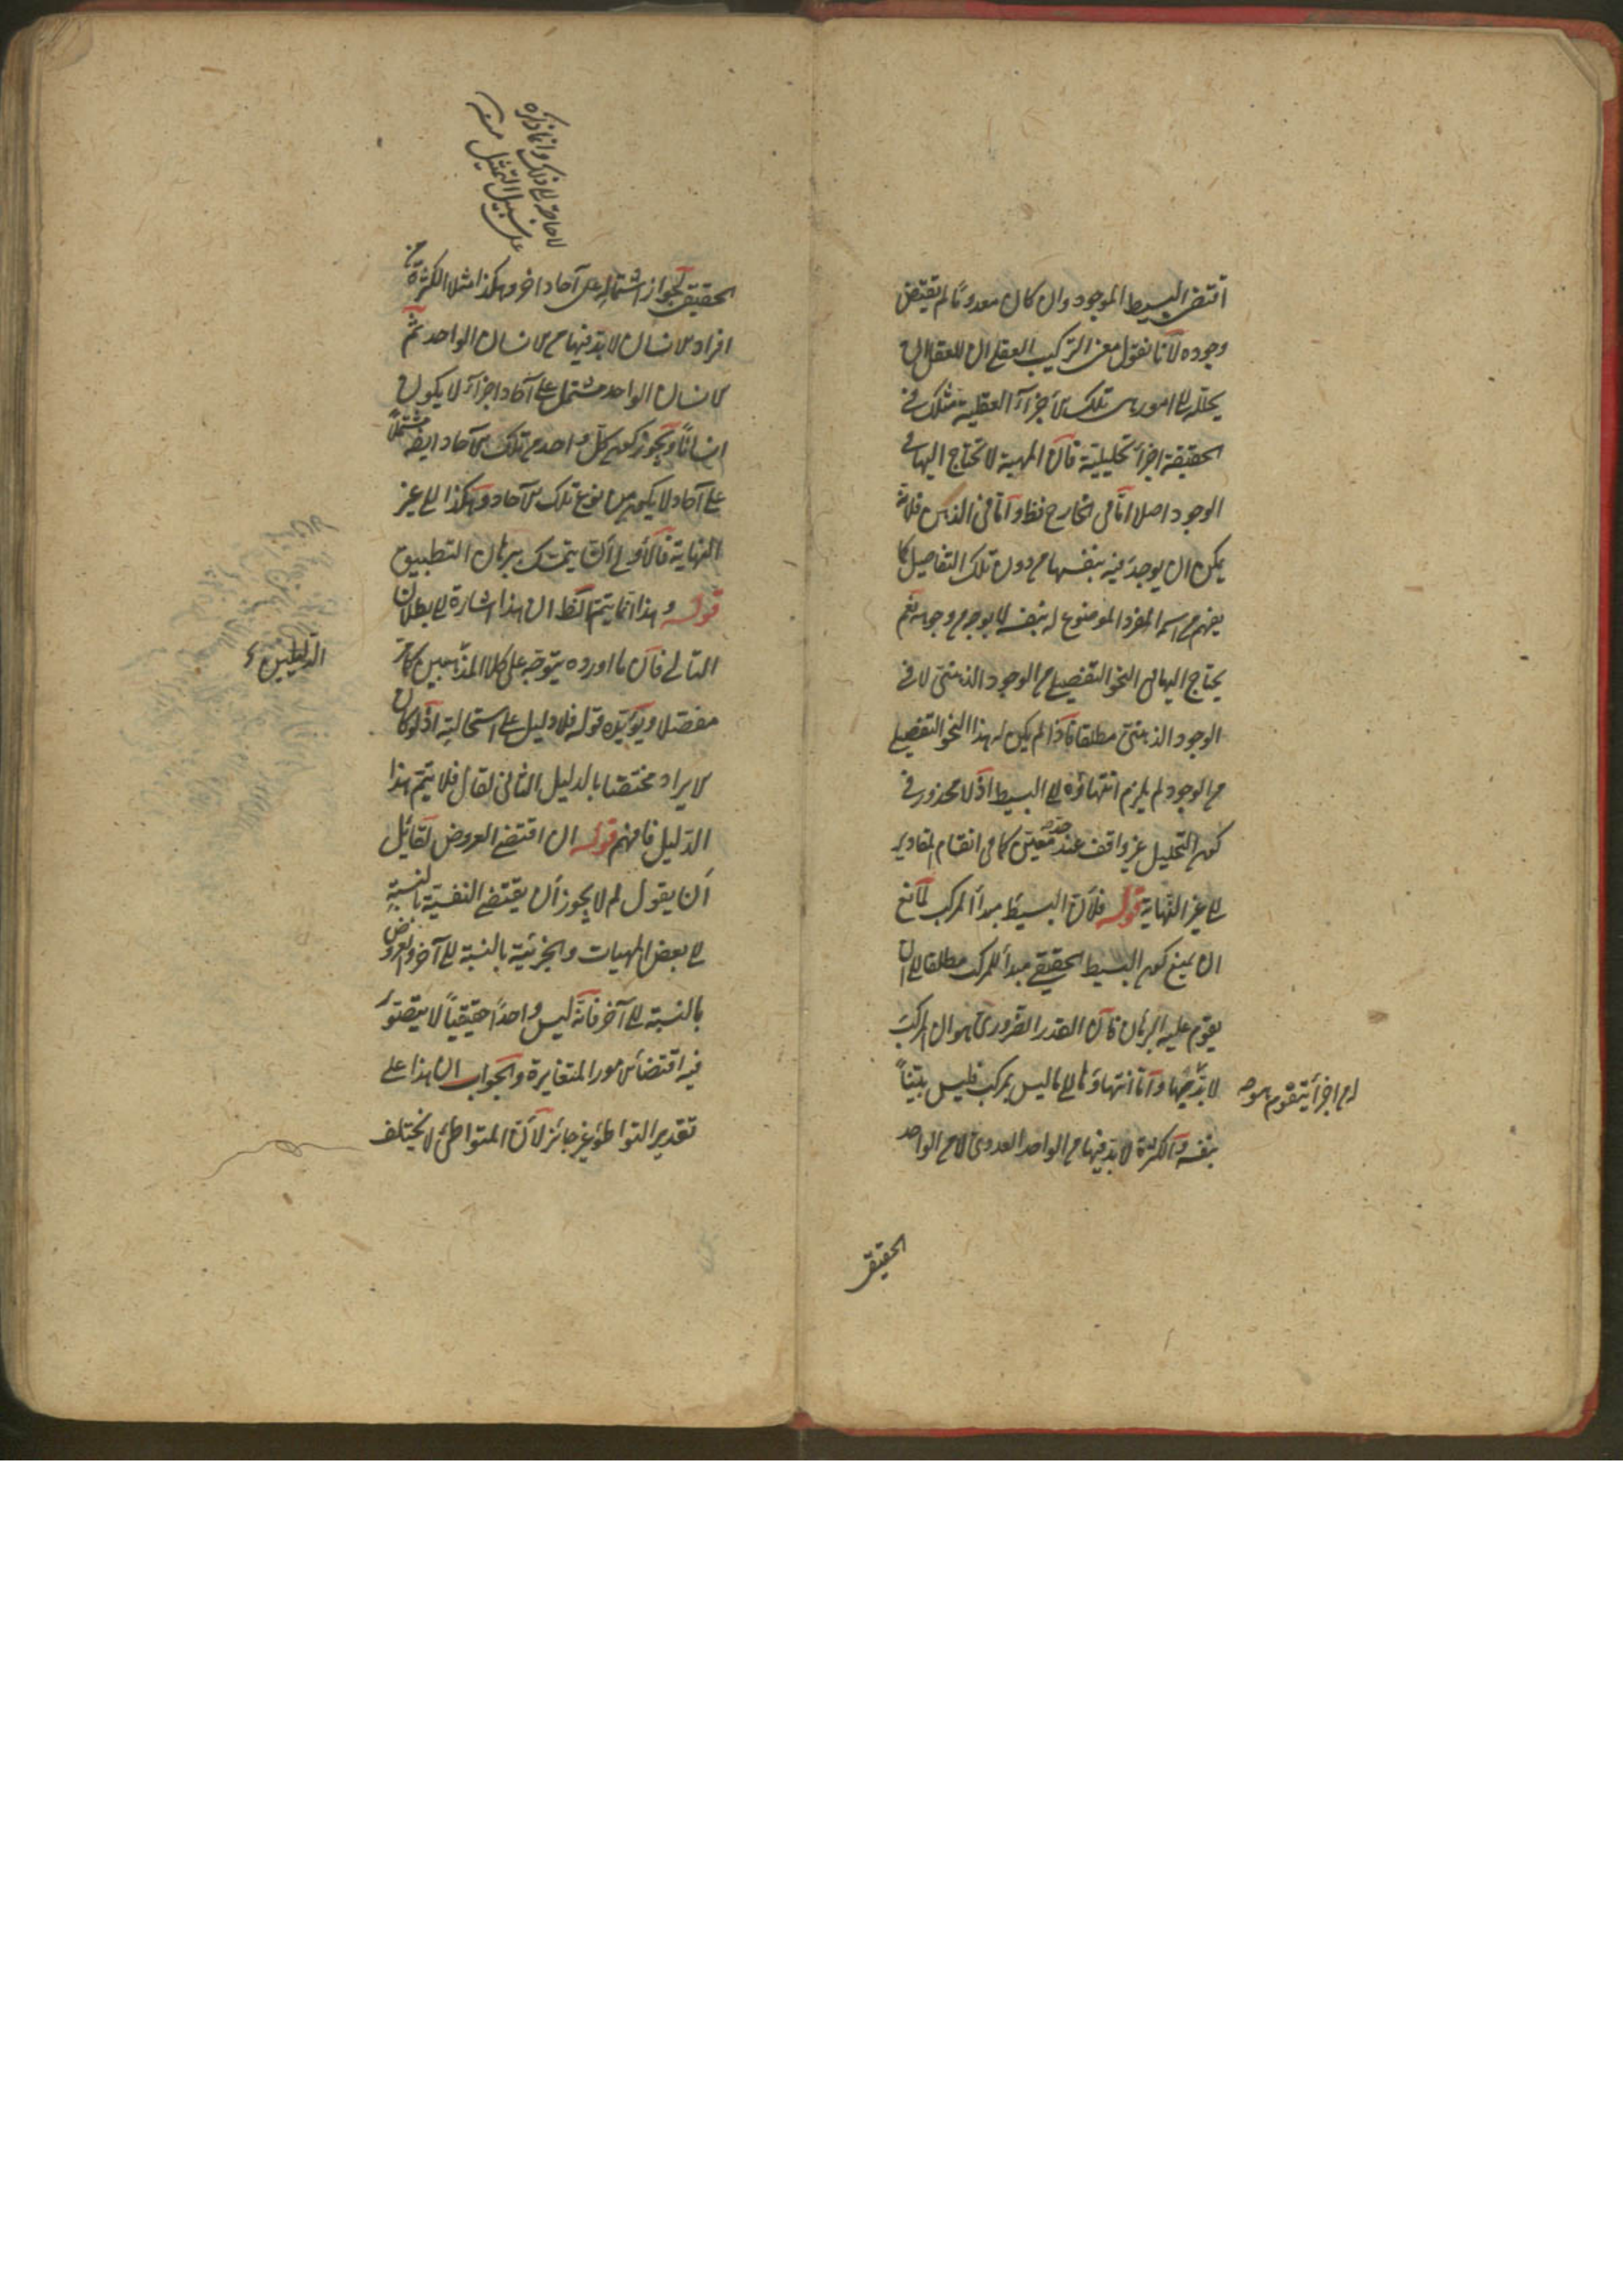 اقتضى البسيط الموجود وان كان معدوما لم يقتض
وجوده لانا نقول معنى التركيب العقلي ان للعقل ان
يحلله الى امور هي تلك الاجزاء العقلية فتلك في
الحقيقة اجزاء تحليلية فان المهية لا تحتاج اليها في
الوجود اصلا اما في الخارج فظ واما في الذهن فلانه
يمكن ان يوجد فيه بنفسها من دون تلك التفاصيل كما
يفهم من اسمه المفرد الموضوع له بنفسه لا بوجه من وجوهه نعم
يحتاج اليها في النحو التفصيلي من الوجود الذهني لا في
الوجود الذهني مطلقا فاذا لم يكن له هذا النحو التفصيلي
من الوجود لم يلزم انتهاؤه الى البسيط اذ لا محذور في
كون التحليل غير واقف عند حد معين كما في انقسام المقادير
الى غير النهاية قوله فلان البسيط مبدأ المركب لمانع
ان يمنع كون البسيط الحقيقي مبدأ للمركب مطلقا الى ان
يقوم عليه البرهان فان القدر الضروري هو ان المركب
لا بد له من اجزاء يتقوم بها واما انتهاؤها الى ما ليس بمركب فليس بيّناً
بنفسه والكثرة لا بد فيها من الواحد العددي لا من الواحد
الحقيقي
لا حاجة الى ذلك وانما ذكره
على سبيل التمثيل منه
الحقيقي لجواز اشتماله على آحاد اخر وهكذا مثلا الكثرة من
افراد الانسان لا بد فيها من الانسان الواحد ثم
الانسان الواحد مشتمل على آحاد اجزاء لا يكون
انسانا ويجوز كون كل واحد من تلك الآحاد ايضا مشتملا
على آحاد لا يكون من نوع تلك الآحاد وهكذا الى غير
النهاية فالاولى ان يتمسك ببرهان التطبيق
قوله وهذا انما يتم الظ ان هذا اشارة الى بطلان
التالي فان ما اورده يتوجه على كلا الدليلين كما مر
مفصلا ويؤيده قوله فلا دليل على استحالته اذ لو كان
الايراد مختصا بالدليل الثاني لقال فلا يتم هذا
الدليل فافهم قوله ان اقتضى العروض لقائل
ان يقول لم لا يجوز ان يقتضي النفسية بالنسبة
الى بعض المهيات والجزئية بالنسبة الى آخر والعروض
بالنسبة الى آخر فانه ليس واحداً حقيقياً لا يتصور
فيه اقتضاء الامور المتغايرة والجواب ان هذا على
تقدير التواطؤ غير جائز لان المتواطئ لا يختلف